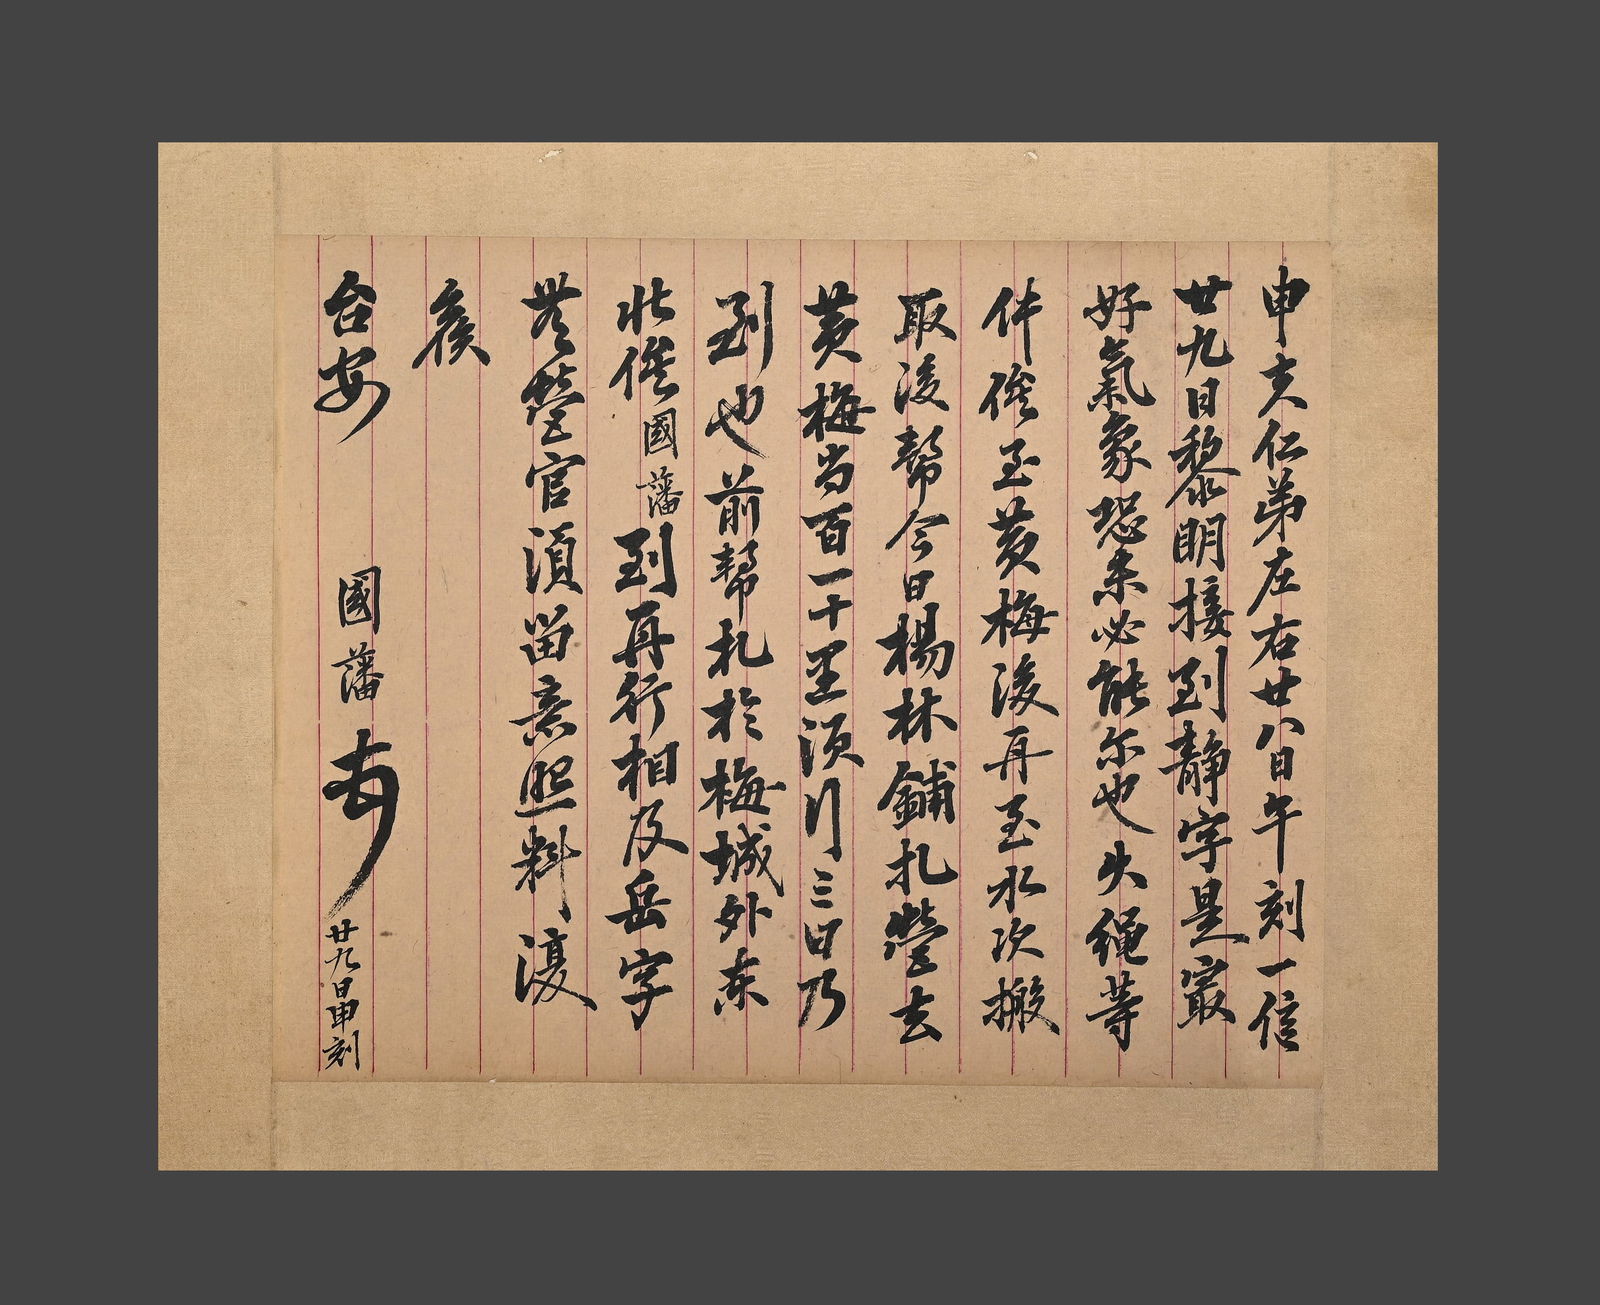 申夫仁弟左右廿八日午刻一信
廿九日黎明接到靜字是最
好氣象恐未必能尔也火繩等
件俟至黃梅後再至水次搬
取後幫今日楊林鋪扎營去
黃梅尚百一十里須行三日乃
到也前幫札於梅城外東
北俟國藩到再行相度岳字
營官須留意照料復
候
台安
國藩頓首廿九日申刻